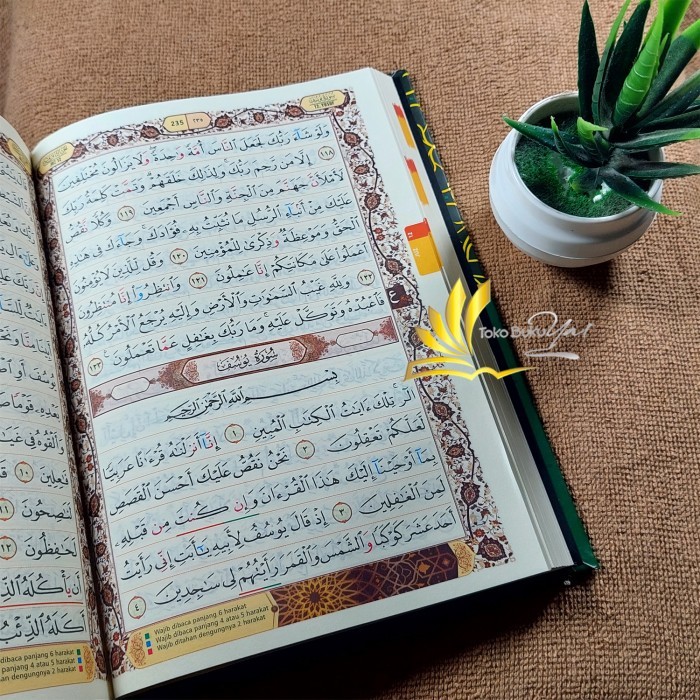 235 ٢٣٥
وَلَوْ شَآءَ رَبُّكَ لَجَعَلَ ٱلنَّاسَ أُمَّةً وَٰحِدَةً وَلَا يَزَالُونَ مُخْتَلِفِينَ
١١٨ إِلَّا مَن رَّحِمَ رَبُّكَ وَلِذَٰلِكَ خَلَقَهُمْ وَتَمَّتْ كَلِمَةُ رَبِّكَ
لَأَمْلَأَنَّ جَهَنَّمَ مِنَ ٱلْجِنَّةِ وَٱلنَّاسِ أَجْمَعِينَ ١١٩ وَكُلًّا نَّقُصُّ
عَلَيْكَ مِنْ أَنۢبَآءِ ٱلرُّسُلِ مَا نُثَبِّتُ بِهِۦ فُؤَادَكَ وَجَآءَكَ فِى هَٰذِهِ
ٱلْحَقُّ وَمَوْعِظَةٌ وَذِكْرَىٰ لِلْمُؤْمِنِينَ ١٢٠ وَقُل لِّلَّذِينَ لَا يُؤْمِنُونَ
ٱعْمَلُوا۟ عَلَىٰ مَكَانَتِكُمْ إِنَّا عَٰمِلُونَ ١٢١ وَٱنتَظِرُوٓا۟ إِنَّا مُنتَظِرُونَ
١٢٢ وَلِلَّهِ غَيْبُ ٱلسَّمَٰوَٰتِ وَٱلْأَرْضِ وَإِلَيْهِ يُرْجَعُ ٱلْأَمْرُ كُلُّهُۥ
فَٱعْبُدْهُ وَتَوَكَّلْ عَلَيْهِ وَمَا رَبُّكَ بِغَٰفِلٍ عَمَّا تَعْمَلُونَ ١٢٣
سُورَةُ يُوسُفَ
بِسْمِ ٱللَّهِ ٱلرَّحْمَٰنِ ٱلرَّحِيمِ
الٓر تِلْكَ ءَايَٰتُ ٱلْكِتَٰبِ ٱلْمُبِينِ ١ إِنَّآ أَنزَلْنَٰهُ قُرْءَٰنًا عَرَبِيًّا
لَّعَلَّكُمْ تَعْقِلُونَ ٢ نَحْنُ نَقُصُّ عَلَيْكَ أَحْسَنَ ٱلْقَصَصِ
بِمَآ أَوْحَيْنَآ إِلَيْكَ هَٰذَا ٱلْقُرْءَانَ وَإِن كُنتَ مِن قَبْلِهِۦ
لَمِنَ ٱلْغَٰفِلِينَ ٣ إِذْ قَالَ يُوسُفُ لِأَبِيهِ يَٰٓأَبَتِ إِنِّى رَأَيْتُ
أَحَدَ عَشَرَ كَوْكَبًا وَٱلشَّمْسَ وَٱلْقَمَرَ رَأَيْتُهُمْ لِى سَٰجِدِينَ ٤
Wajib dibaca panjang 6 harakat
Wajib dibaca panjang 4 atau 5 harakat
Wajib ditahan dengungnya 2 harakat
Toko Buku Ya!
dibaca panjang 6 harakat
panjang 4 atau 5 harakat
dengungnya 2 harakat